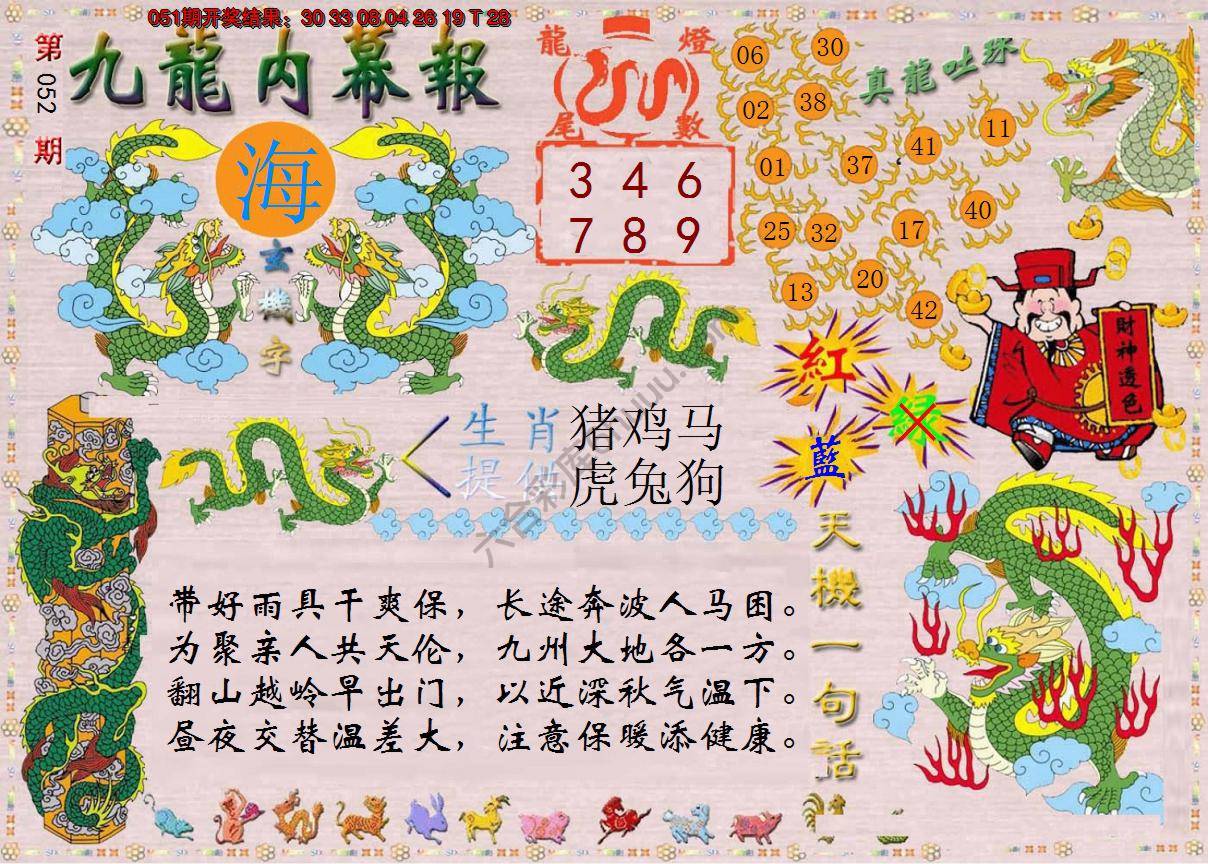 051期开奖结果：30 33 08 04 26 19 T 28
第052期
九龍内幕報
海
玄機字
龍燈
尾數
3 4 6
7 8 9
真龍吐珠
06 30
02 38
01 37 41 11
25 32 17 40
13 20 42
財神透色
紅
綠
藍
生肖 猪鸡马
提供 虎兔狗
天機一句話
带好雨具干爽保，长途奔波人马困。
为聚亲人共天伦，九州大地各一方。
翻山越岭早出门，以近深秋气温下。
昼夜交替温差大，注意保暖添健康。